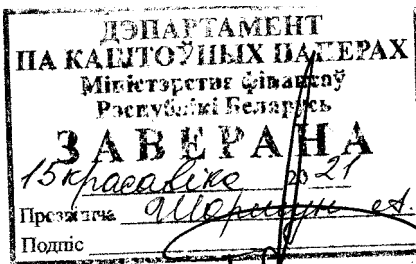 ДЭПАРТАМЕНТ
ПА КАШТОЎНЫХ ПАПЕРАХ
Міністэрства фінансаў
Рэспублікі Беларусь
ЗАВЕРАНА
15 красавіка 2021
Прозвішча
Подпіс